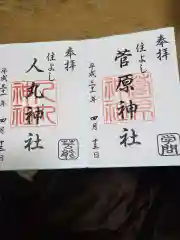 奉拝
住よし
菅原神社
平成三十一年 四月 十三日
奉拝
住よし
人丸神社
平成三十一年 四月 十三日